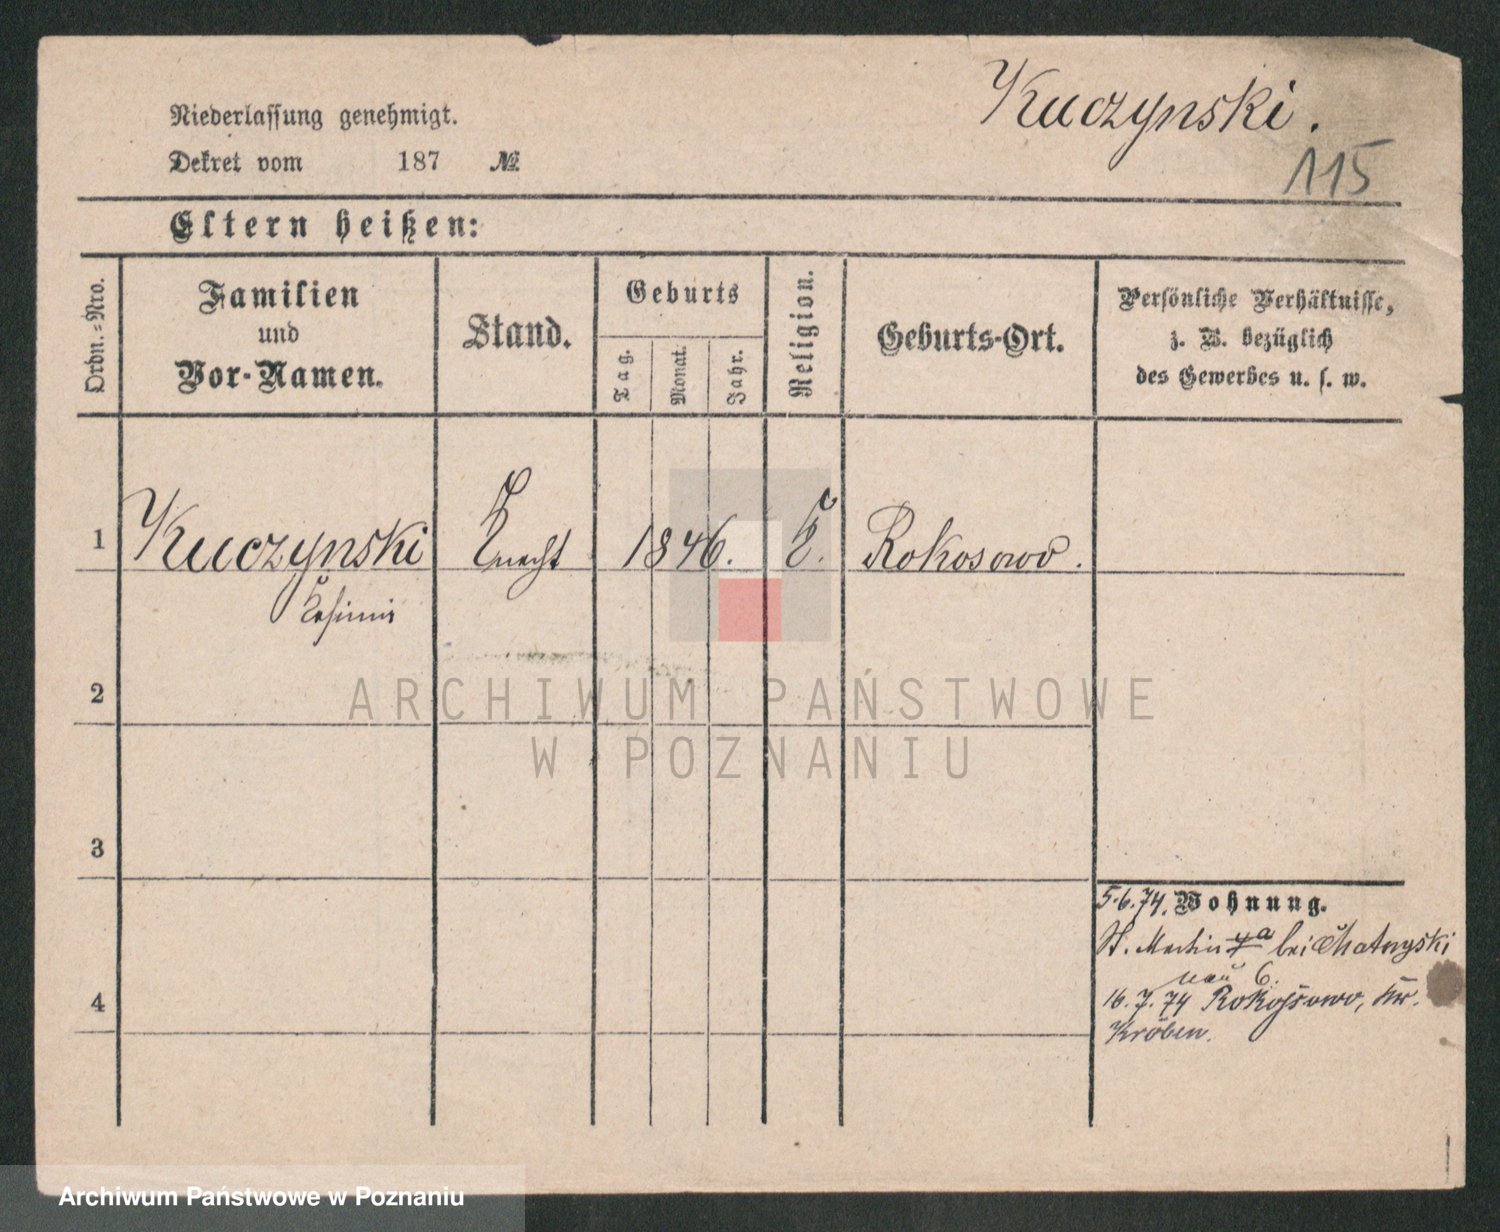 Kuczynski.
115
Niederlassung genehmigt.
Dekret vom 187 №
Eltern heißen:
Ordn.=Nro.
Familien
und
Vor-Namen.
Stand.
Geburts
Tag.
Monat.
Jahr.
Religion.
Geburts-Ort.
Persönliche Verhältnisse,
z. B. bezüglich
des Gewerbes u. s. w.
1 Kuczynski Knecht 1846. K. Rokosowo.
Kasimir
2
3
4
5.6.74. Wohnung.
St. Martin 4a bei
6.
16.7.74 Rokossowo, Kr.
Kröben.
ARCHIWUM PAŃSTWOWE
W POZNANIU
Archiwum Państwowe w Poznaniu